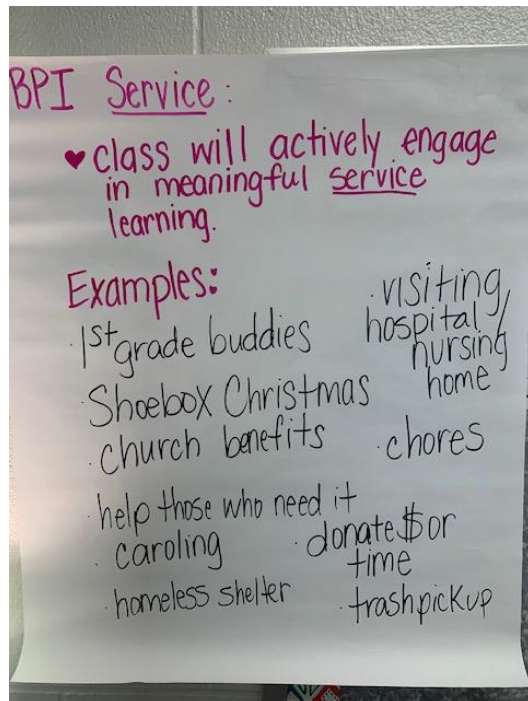 BPI Service:
♥ class will actively engage
in meaningful service
learning.
Examples:
· 1st grade buddies
· Shoebox Christmas
· church benefits
· help those who need it
· caroling
· homeless shelter
· visiting
hospital/
nursing
home
· chores
· donate $ or
time
· trash pickup